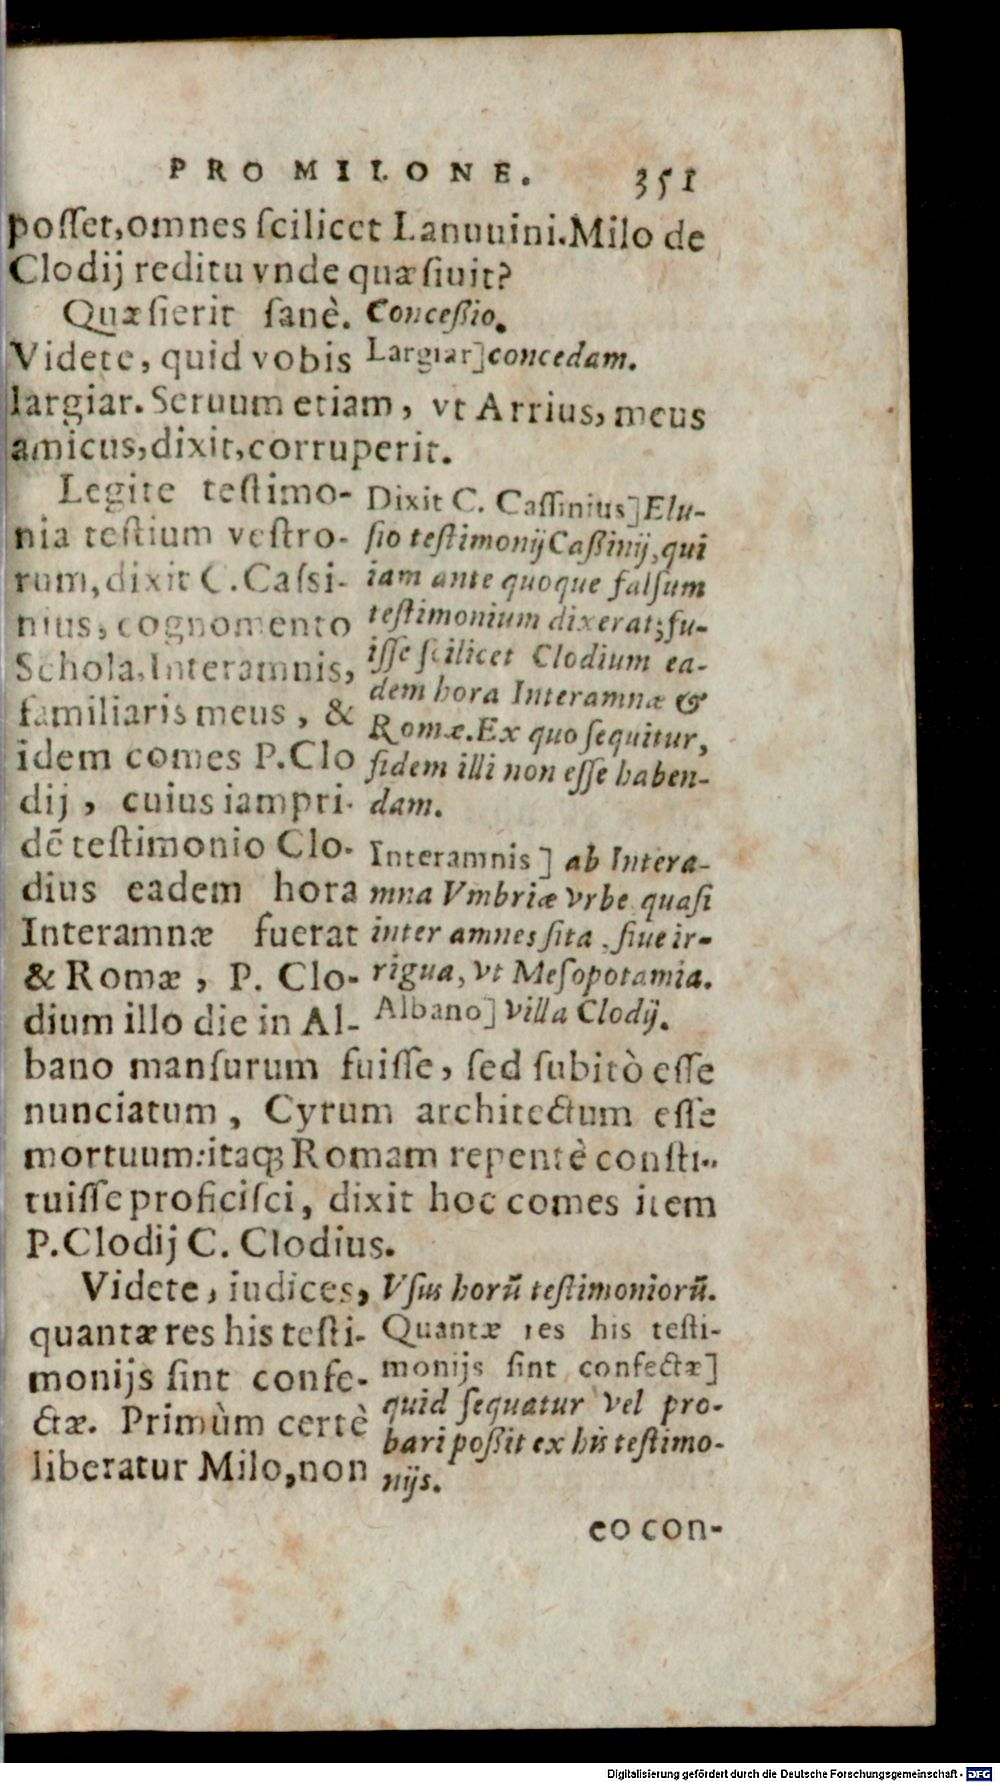 PRO MILONE. 351
posſet,omnes ſcilicet Lanuuini.Milo de
Clodij reditu vnde quæſiuit?
Quæſierit ſanè.
Videte, quid vobis
largiar. Seruum etiam, vt Arrius, meus
amicus,dixit,corruperit.
Conceßio.
Largiar] concedam.
Legite teſtimo-
nia teſtium veſtro-
rum,dixit C. Caſsi-
nius, cognomento
Schola, Interamnis,
familiaris meus, &
idem comes P.Clo
dij, cuius iampri-
dē teſtimonio Clo-
dius eadem hora
Interamnæ fuerat
& Romæ, P. Clo-
dium illo die in Al-
bano manſurum fuiſſe, ſed ſubitò eſſe
nunciatum, Cyrum architectum eſſe
mortuum:itaq; Romam repentè conſti-
tuiſſe proficiſci, dixit hoc comes item
P.Clodij C. Clodius.
Dixit C. Caſſinius] Elu-
ſio teſtimonij Caßinij,qui
iam ante quoque falſum
teſtimonium dixerat;fu-
iſſe ſcilicet Clodium ea-
dem hora Interamnæ &
Romæ.Ex quo ſequitur,
fidem illi non eſſe haben-
dam.
Interamnis] ab Intera-
mna Vmbriæ vrbe quaſi
inter amnes ſita, ſiue ir-
rigua, vt Meſopotamia.
Albano] villa Clodij.
Videte, iudices,
quantæ res his teſti-
monijs ſint confe-
ctæ. Primùm certè
liberatur Milo,non
Vſus horū teſtimoniorū.
Quantæ res his teſti-
monijs ſint confectæ]
quid ſequatur vel pro-
bari poßit ex his teſtimo-
nijs.
eo con-
Digitalisierung gefördert durch die Deutsche Forschungsgemeinschaft - DFG